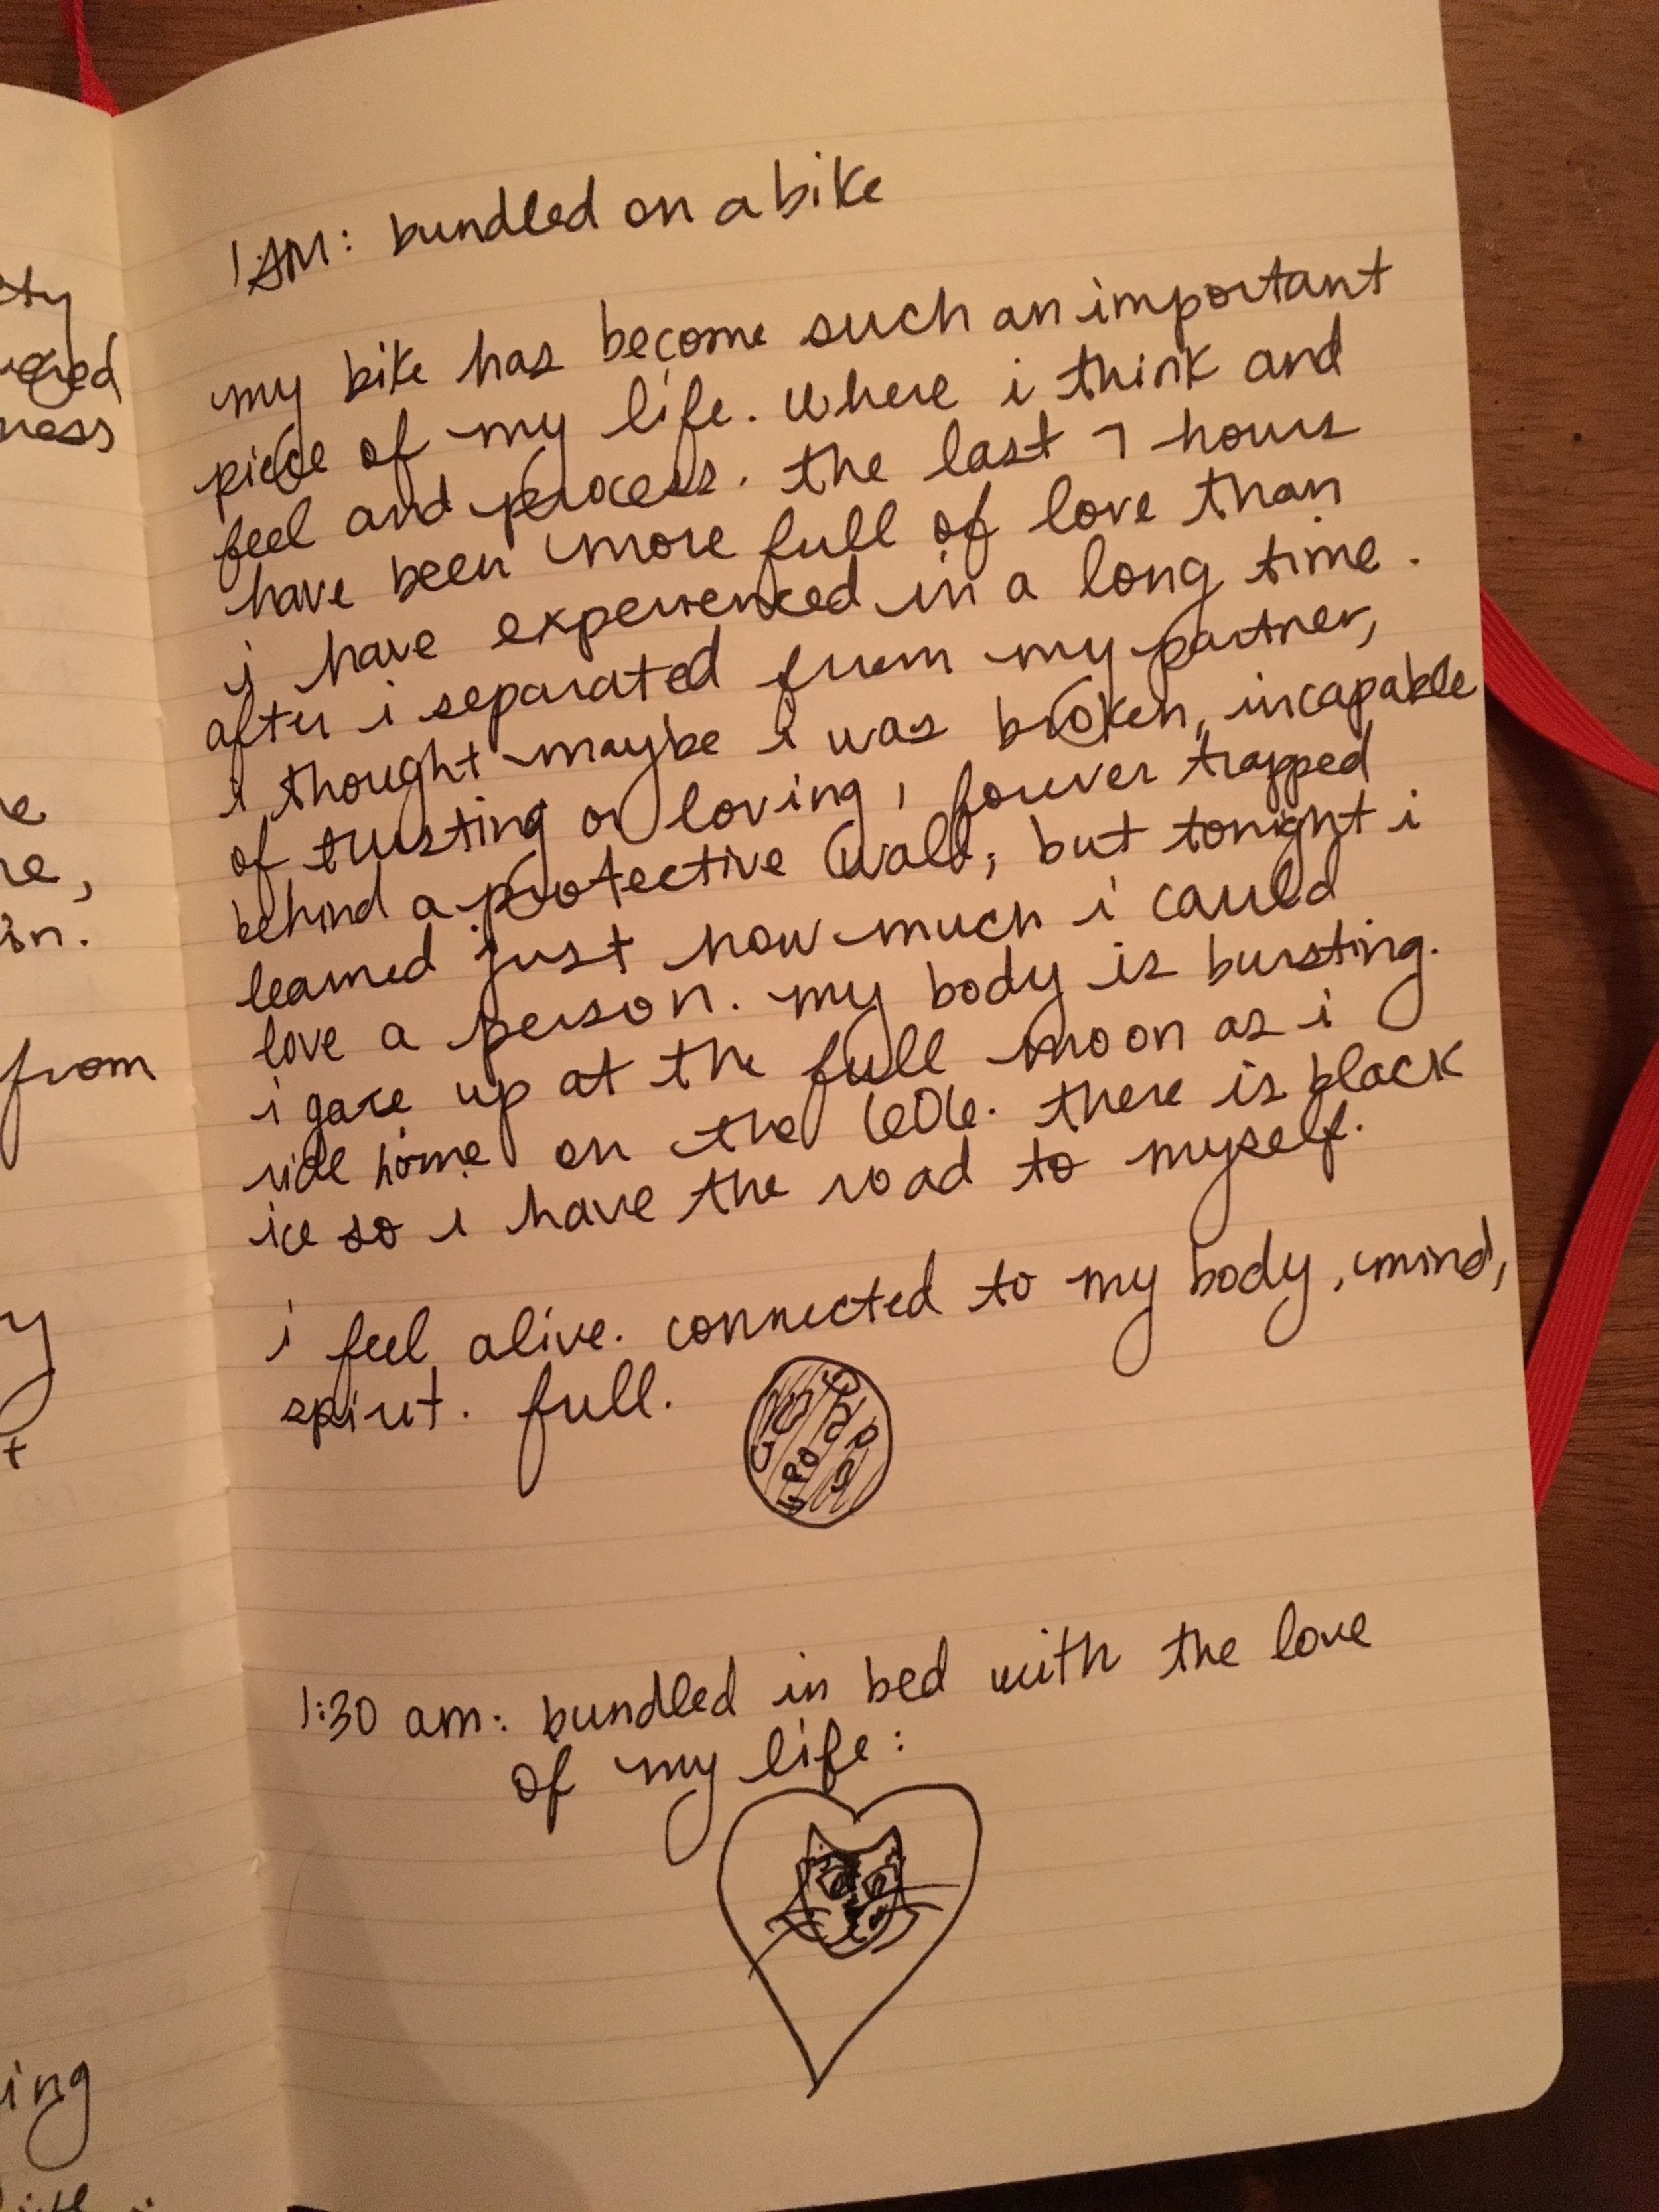 ty
ness
from
in.
ing
1 AM: bundled on a bike
my bike has become such an important
piece of my life. where i think and
feel and process. the last 7 hours
have been more full of love than
i have experienced in a long time.
after i separated from my partner,
i thought maybe i was broken, incapable
of trusting or loving, forever trapped
behind a protective wall, but tonight i
learned just how much i could
love a person. my body is bursting.
i gaze up at the full moon as i
ride home on the 606. there is black
ice so i have the road to myself.
i feel alive. connected to my body, mind,
spirit. full.
1:30 am: bundled in bed with the love
of my life: